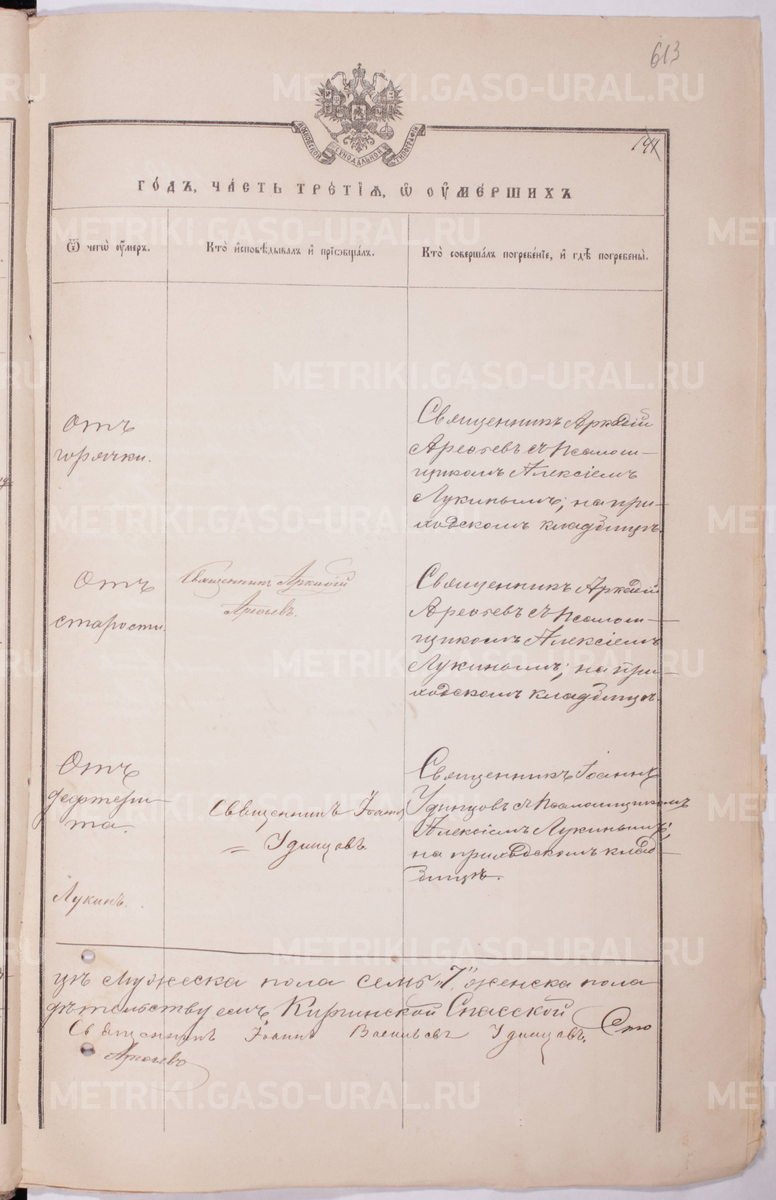 613
194
ГО́ДЪ, ЧА́СТЬ ТРЕ́ТІѦ, Ѿ ОУМЕ́РШИХЪ
Ѿ чегѡ̀ оу́меръ.
Кто̀ и҆сповѣ́дывалъ и҆ прїѡбща́лъ.
Кто̀ соверша́лъ погребе́нїе, и҆ гдѣ̀ погребены̀.
Отъ
горячки.
Священникъ Аркадій
Арефьевъ съ Псалом-
щикомъ Алексіемъ
Лукинымъ; на при-
ходскомъ кладбищѣ.
Отъ
старости.
Священникъ Аркадій
Арефьевъ
Священникъ Аркадій
Арефьевъ съ Псалом-
щикомъ Алексіемъ
Лукинымъ; на при-
ходскомъ кладбищѣ.
Отъ
дефтери-
та.
Священникъ Іоаннъ
Удинцовъ
Священникъ Іоаннъ
Удинцовъ съ Псаломщикомъ
Алексіемъ Лукинымъ;
на приходскомъ клад-
бищѣ.
Лукинъ.
цѣ мужеска пола семь „7", женска пола
дѣтельствуемъ Киргинской Спасской
Священникъ Іоаннъ Васильевъ Удинцовъ. Сто
Арефьевъ
METRIKI.GASO-URAL.RU